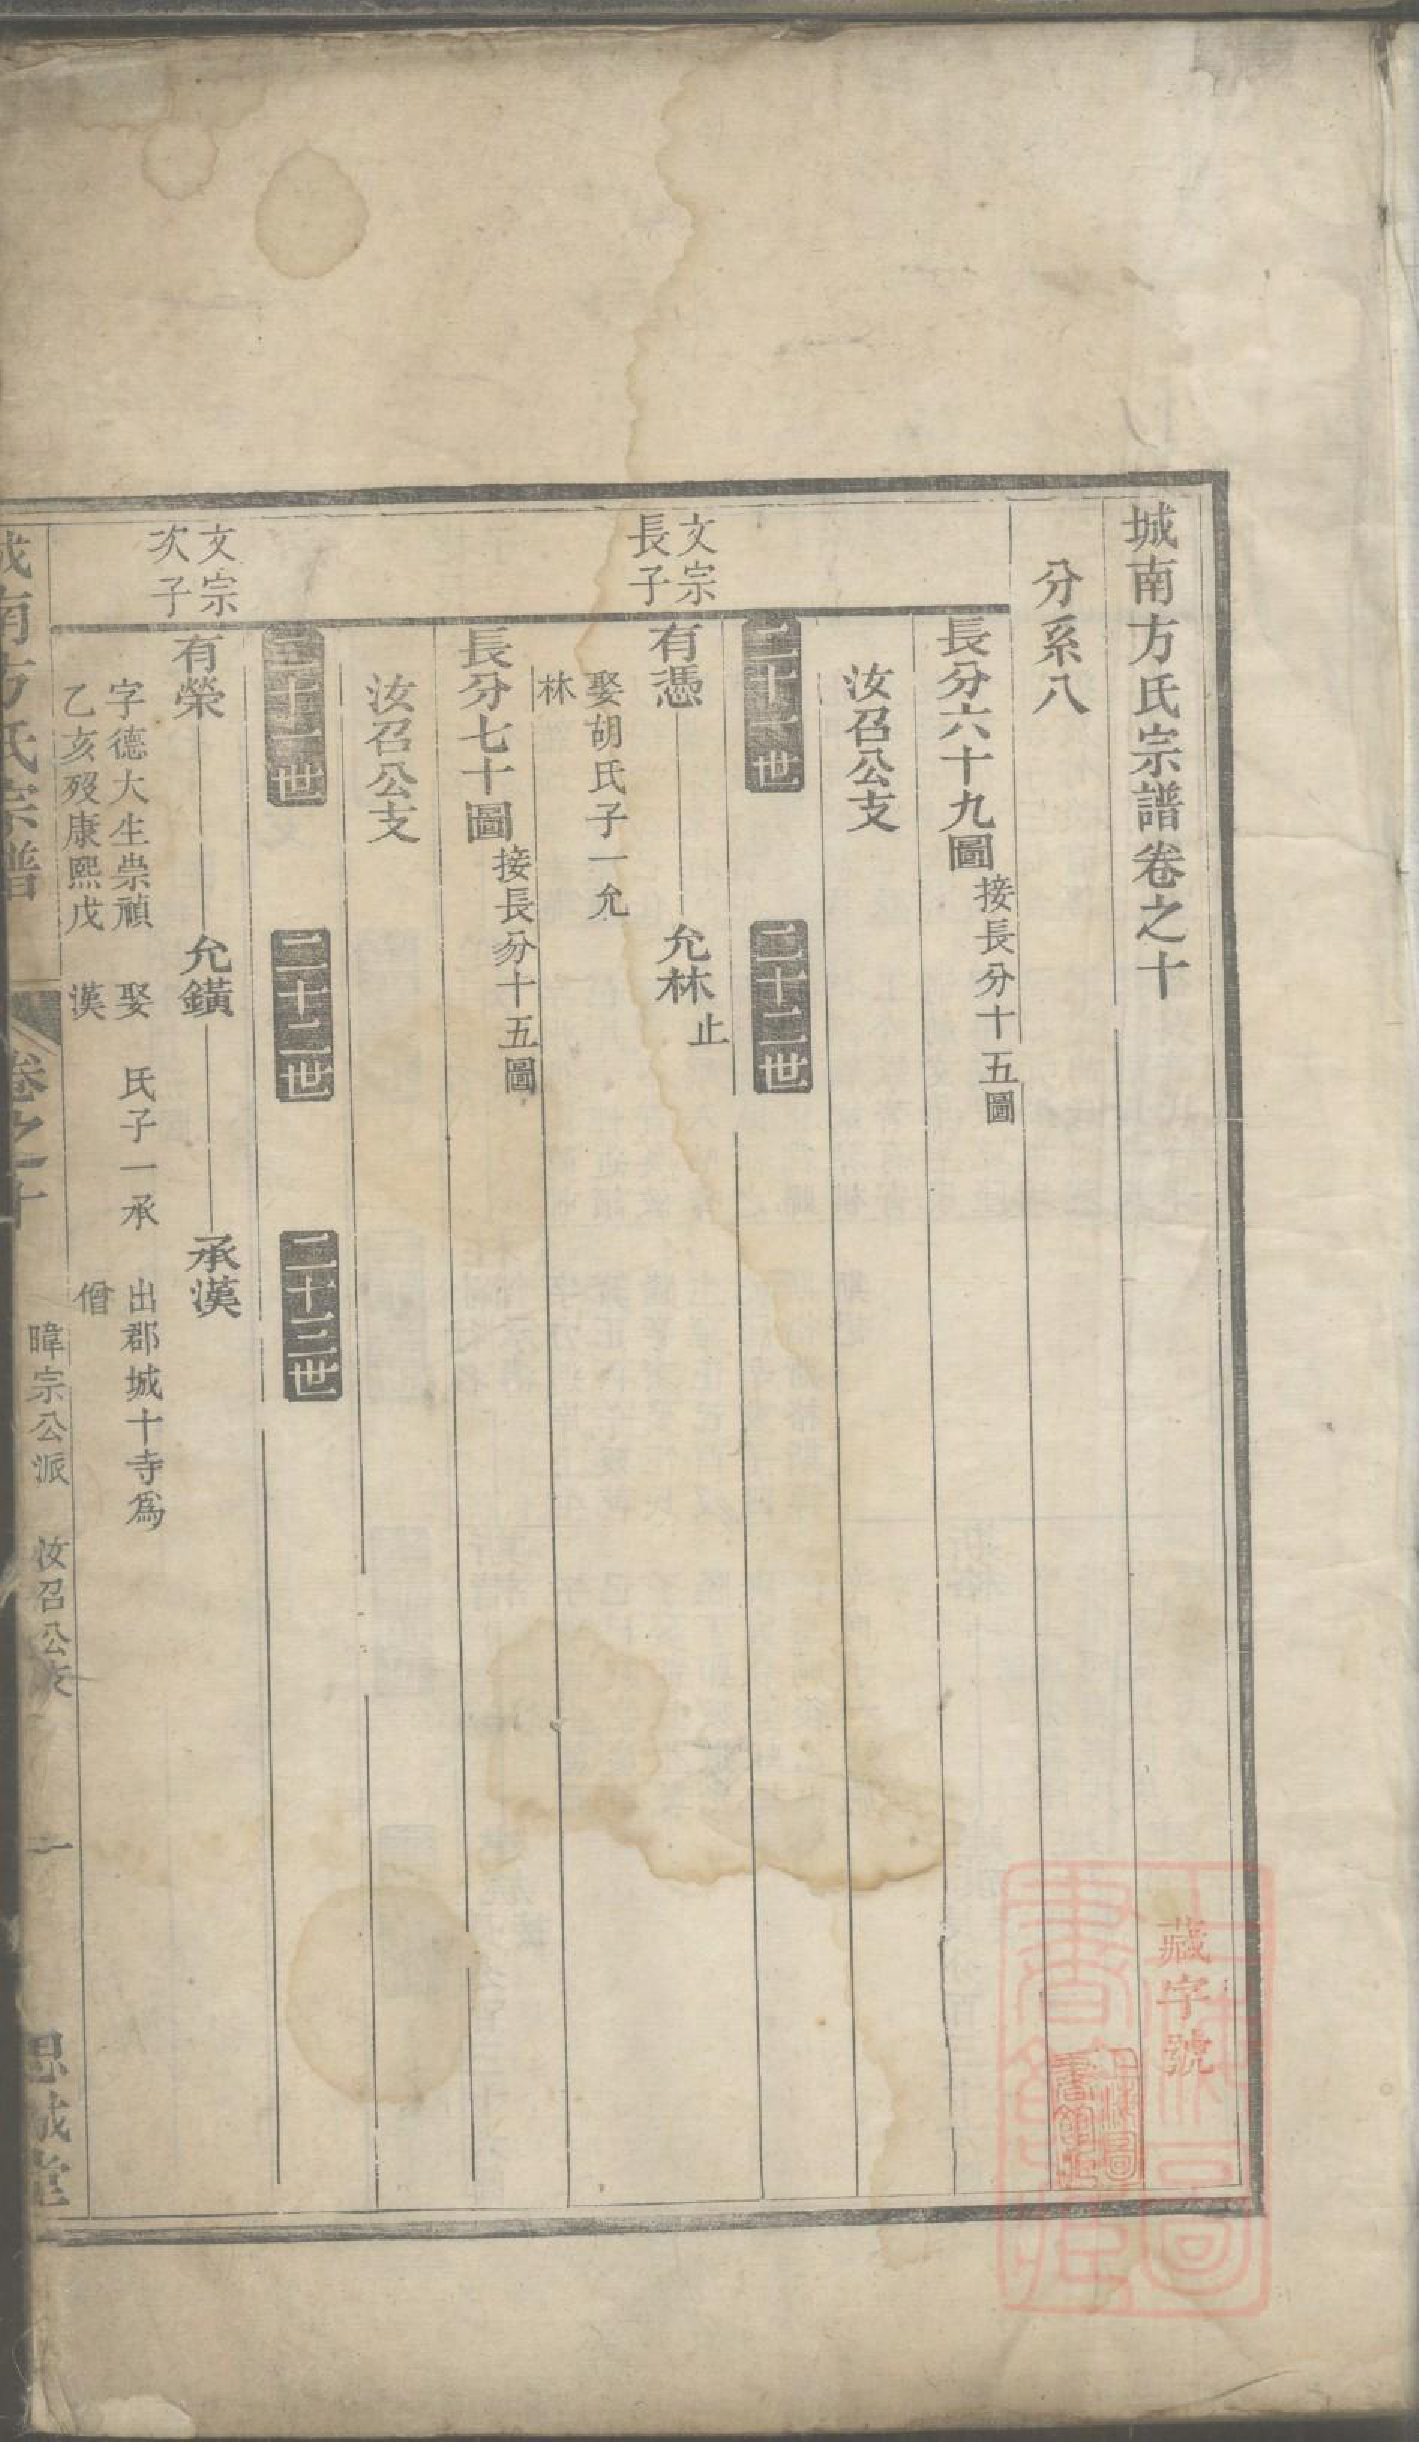 城南方氏宗譜卷之十
分系八
長分六十九圖接長分十五圖
汝召公支
二十一世
二十二世
文宗
長子
有憑
允林止
娶胡氏子一允
林
長分七十圖接長分十五圖
汝召公支
二十一世
二十二世
二十三世
文宗
次子
有榮
允鐄
承漢
字德大生崇禎
乙亥歿康熙戊
娶 氏子一承
漢
出郡城十寺爲
僧
城南方氏宗譜
卷之十
暐宗公派 汝召公支
一
思誠堂
藏字號